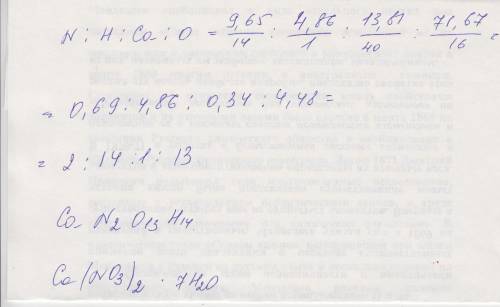 N : H : Ca : O = 9,65/14 : 4,86/1 : 13,81/40 : 71,67/16 =
= 0,69 : 4,86 : 0,34 : 4,48 =
= 2 : 14 : 1 : 13
Ca N2 O13 H14
Ca(NO3)2 · 7H2O